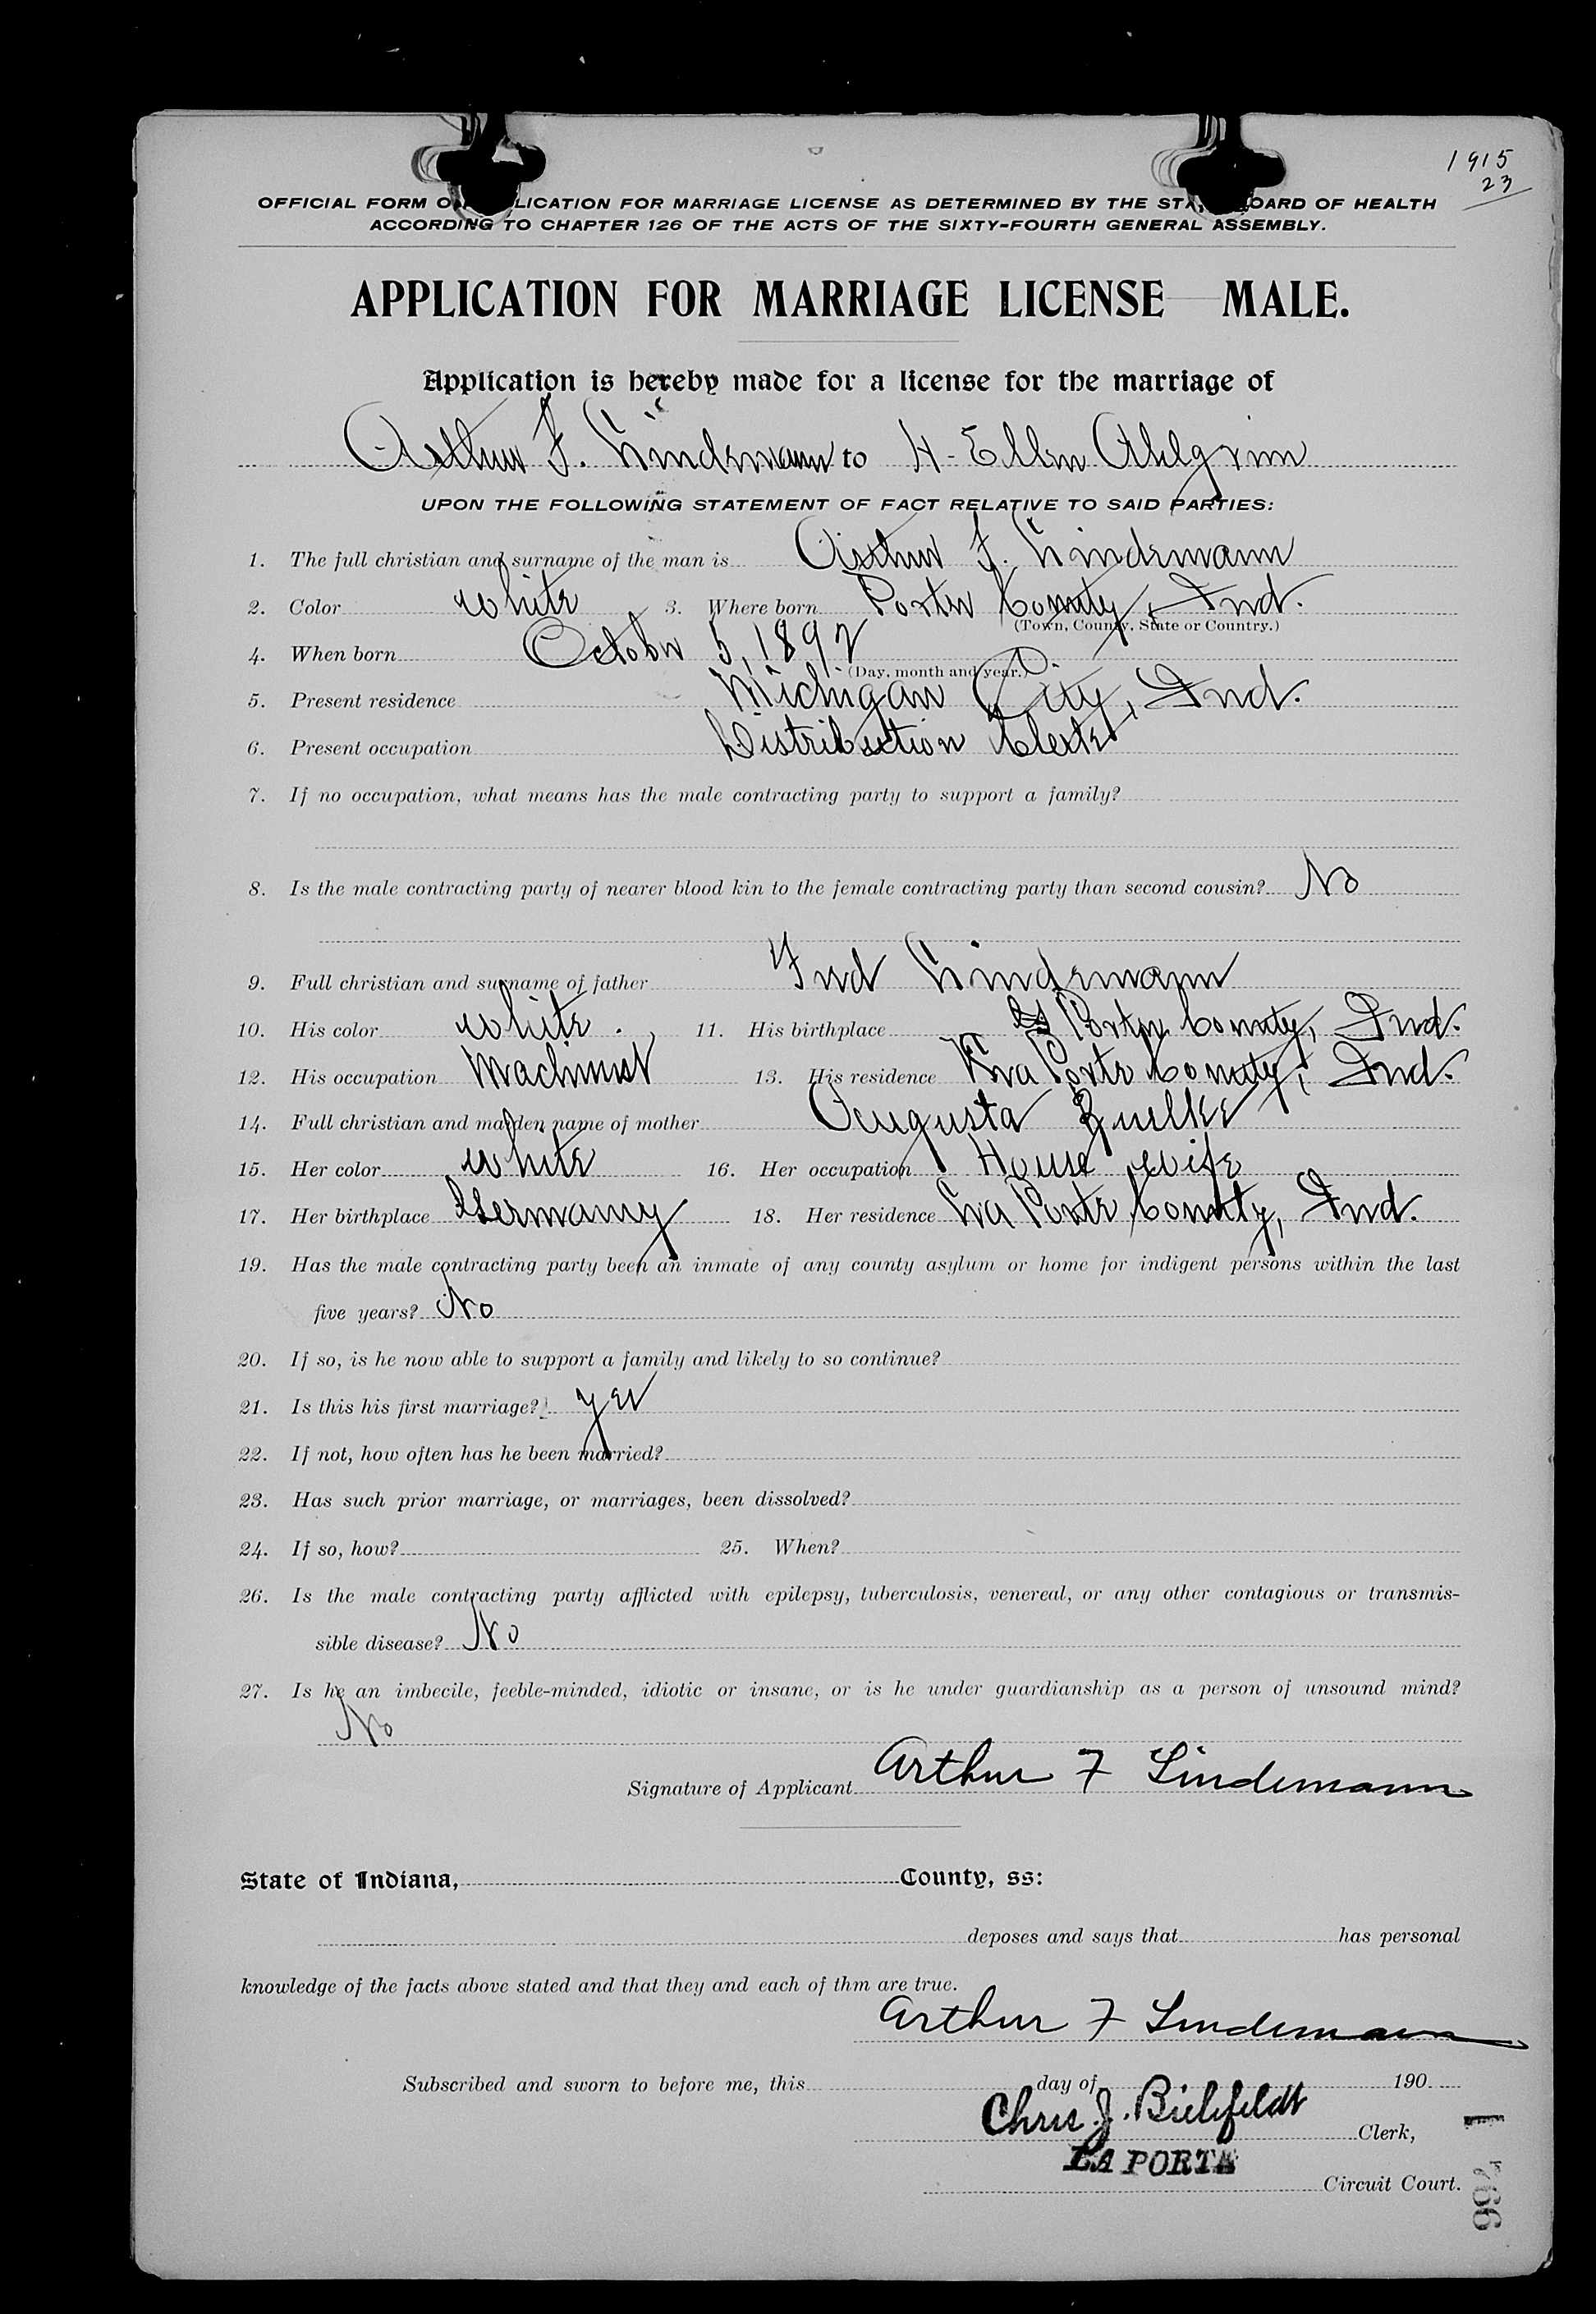 1915
23
OFFICIAL FORM O LICATION FOR MARRIAGE LICENSE AS DETERMINED BY THE STA OARD OF HEALTH
ACCORDING TO CHAPTER 126 OF THE ACTS OF THE SIXTY-FOURTH GENERAL ASSEMBLY.
APPLICATION FOR MARRIAGE LICENSE MALE.
Application is hereby made for a license for the marriage of
Arthur F. Lindemann to H. Ellen Ahlgrim
UPON THE FOLLOWING STATEMENT OF FACT RELATIVE TO SAID PARTIES:
1. The full christian and surname of the man is Arthur F. Lindemann
2. Color white 3. Where born Porter County, Ind.
(Town, County, State or Country.)
4. When born October 5, 1892
(Day, month and year.)
5. Present residence Michigan City, Ind.
6. Present occupation Distribution Clerk
7. If no occupation, what means has the male contracting party to support a family?
8. Is the male contracting party of nearer blood kin to the female contracting party than second cousin? No
9. Full christian and surname of father Fred Lindemann
10. His color white. 11. His birthplace Porter County, Ind.
12. His occupation Machinist 13. His residence La Porte County, Ind.
14. Full christian and maiden name of mother Augusta Zuelke
15. Her color white 16. Her occupation House wife
17. Her birthplace Germany 18. Her residence La Porte County, Ind.
19. Has the male contracting party been an inmate of any county asylum or home for indigent persons within the last
five years? No
20. If so, is he now able to support a family and likely to so continue?
21. Is this his first marriage? yes
22. If not, how often has he been married?
23. Has such prior marriage, or marriages, been dissolved?
24. If so, how? 25. When?
26. Is the male contracting party afflicted with epilepsy, tuberculosis, venereal, or any other contagious or transmis-
sible disease? No
27. Is he an imbecile, feeble-minded, idiotic or insane, or is he under guardianship as a person of unsound mind?
No
Signature of Applicant Arthur F Lindemann
State of Indiana, County, ss:
deposes and says that has personal
knowledge of the facts above stated and that they and each of thm are true.
Arthur F Lindemann
Subscribed and sworn to before me, this day of 190
Chris J. Bielefeldt Clerk,
LA PORTE Circuit Court.